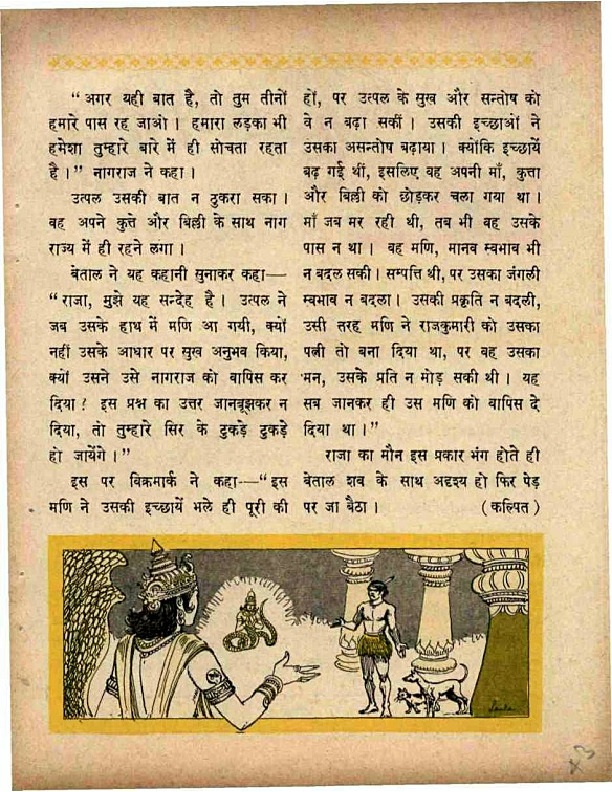 “अगर यही बात है, तो तुम तीनों
हमारे पास रह जाओ। हमारा लड़का भी
हमेशा तुम्हारे बारे में ही सोचता रहता
है।” नागराज ने कहा।
उत्पल उसकी बात न ठुकरा सका।
वह अपने कुत्ते और बिल्ली के साथ नाग
राज्य में ही रहने लगा।
बेताल ने यह कहानी सुनाकर कहा—
“राजा, मुझे यह सन्देह है। उत्पल ने
जब उसके हाथ में मणि आ गयी, क्यों
नहीं उसके आधार पर सुख अनुभव किया,
क्यों उसने उसे नागराज को वापिस कर
दिया? इस प्रश्न का उत्तर जानबूझकर न
दिया, तो तुम्हारे सिर के टुकड़े टुकड़े
हो जायेंगे।”
इस पर विक्रमार्क ने कहा—“इस
मणि ने उसकी इच्छायें भले ही पूरी की
हों, पर उत्पल के सुख और सन्तोष को
वे न बढ़ा सकीं। उसकी इच्छाओं ने
उसका असन्तोष बढ़ाया। क्योंकि इच्छायें
बढ़ गई थीं, इसलिए वह अपनी माँ, कुत्ता
और बिल्ली को छोड़कर चला गया था।
माँ जब मर रही थी, तब भी वह उसके
पास न था। वह मणि, मानव स्वभाव भी
न बदल सकी। सम्पत्ति थी, पर उसका जंगली
स्वभाव न बदला। उसकी प्रकृति न बदली,
उसी तरह मणि ने राजकुमारी को उसका
पत्नी तो बना दिया था, पर वह उसका
मन, उसके प्रति न मोड़ सकी थी। यह
सब जानकर ही उस मणि को वापिस दे
दिया था।”
राजा का मौन इस प्रकार भंग होते ही
बेताल शव के साथ अदृश्य हो फिर पेड़
पर जा बैठा। (कल्पित)